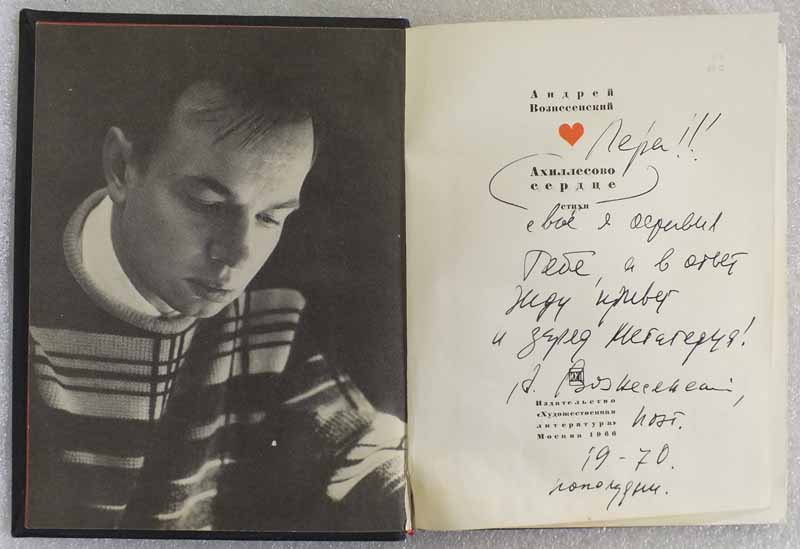 Андрей
Вознесенский
Лера!!!
Ахиллесово
сердце
стихи
свое я
Тебе, а в ответ
Жду привет
и заряд
А. Вознесенский,
Издательство
«Художественная
литература»
поэт.
Москва 1966
19-70.
пополудни.